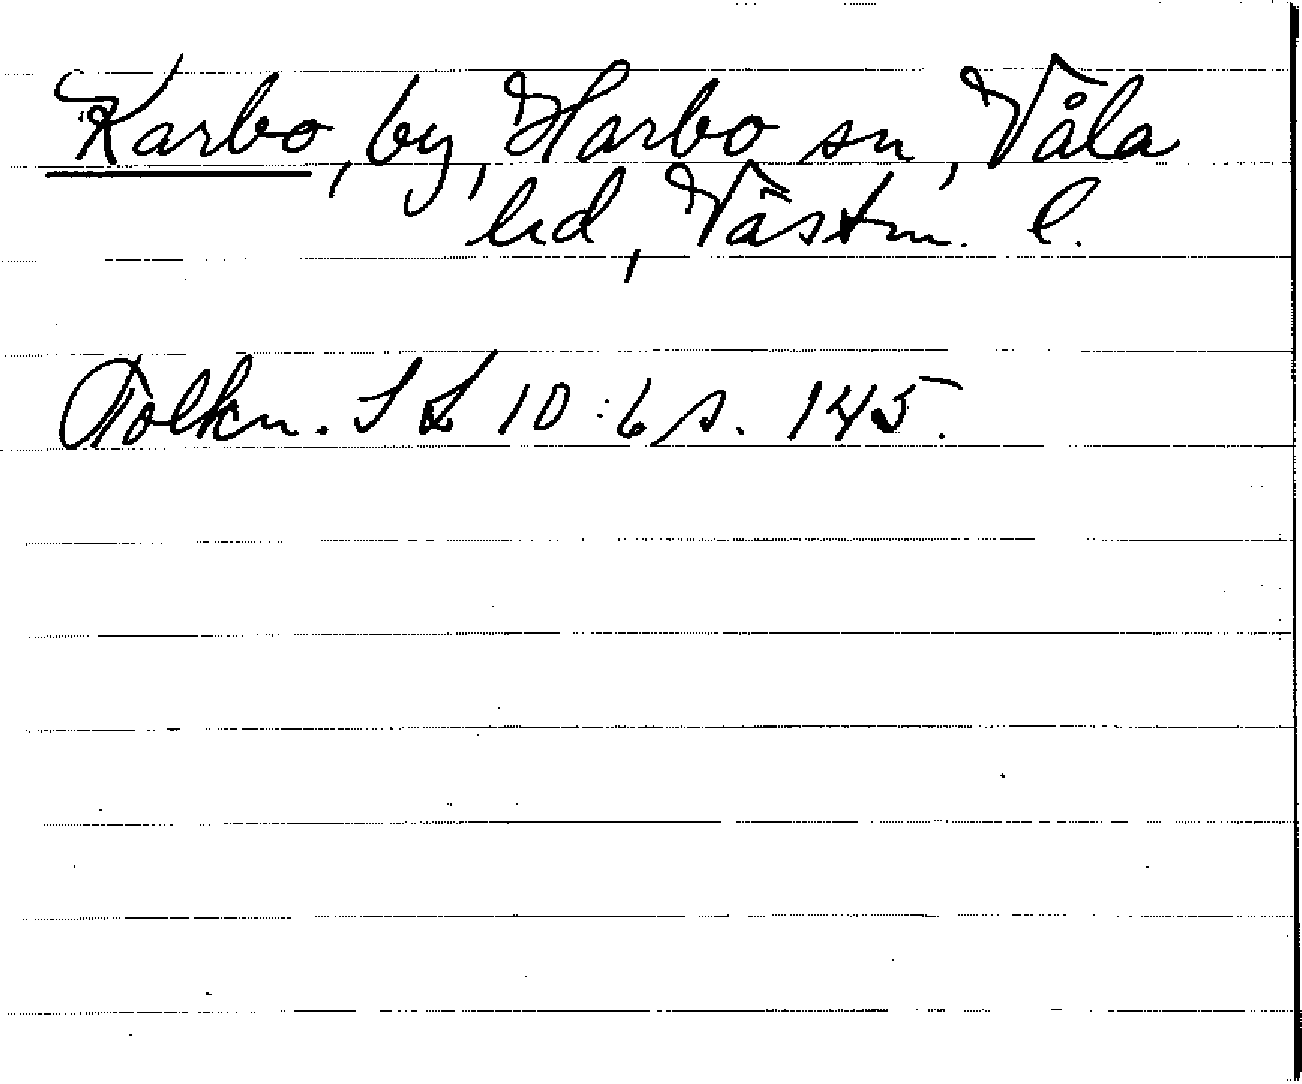 Karbo, by, Harbo sn, Våla
hd, Västm. l.
Tolkn. SL 10:6 s. 145.